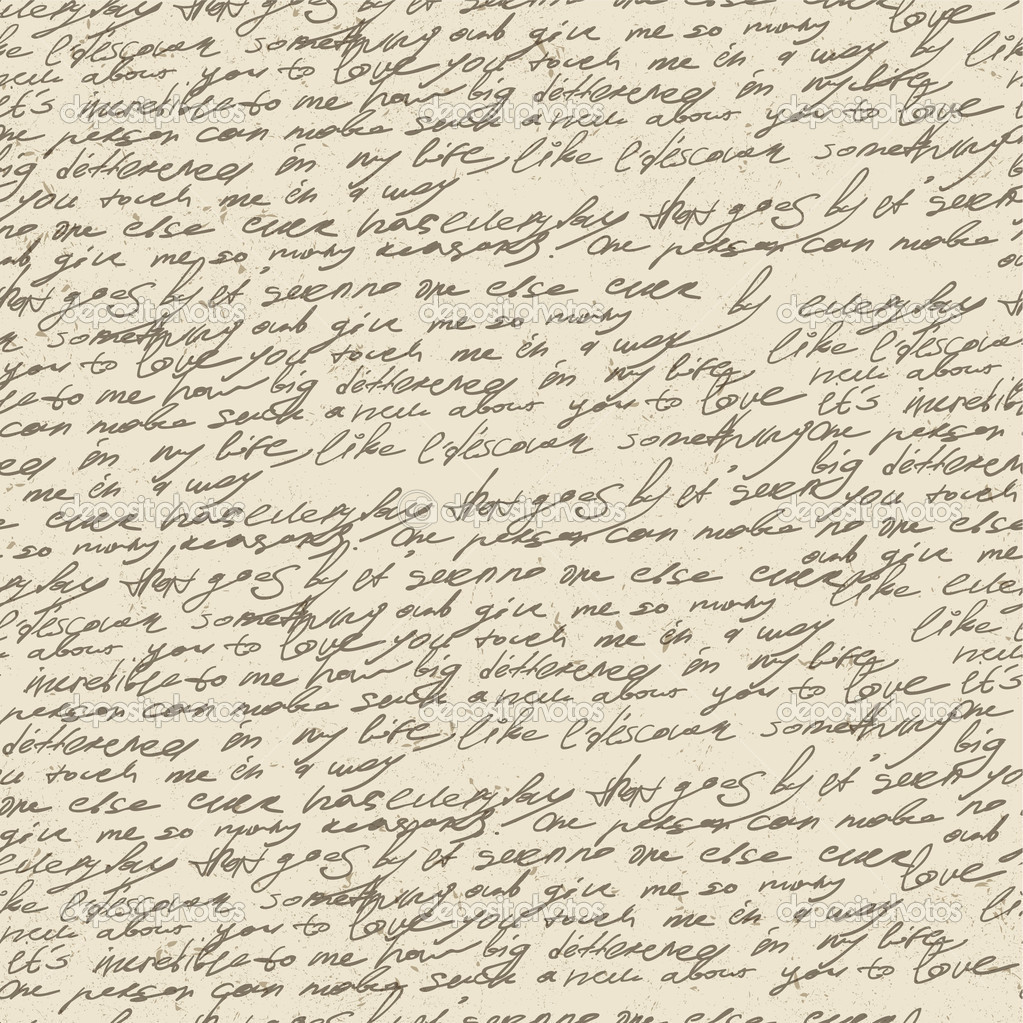 everyday that goes by it seems no one else ever love
like I discover something and give me so many
new about you to love you touch me in a way by like
It's incredible to me how big difference in my life
One person can make such a new about you to love
big difference in my life, like I discover something
you touch me in a way
no one else ever has everyday that goes by it seem
and give me so many reasons. One person can make
that goes by it seem no one else ever by everyday th
something and give me so many like I discover
you to love you touch me in a way new about
to me how big difference in my life It's incredibl
can make such a new about you to love One person
in my life, like I discover something big differen
me in a way you touch
ever has everyday that goes by it seem no one else
so many reasons. One person can make and give me
everyday that goes by it seem no one else ever like ever
I discover something and give me so many like
about you to love you touch me in a way new
incredible to me how big difference in my life It's
person can make such a new about you to love One
difference in my life, like I discover something big
touch me in a way you
one else ever has everyday that goes by it seem no
give me so many reasons. One person can make and
everyday that goes by it seem no one else ever love
like I discover something and give me so many li
new about you to love you touch me in a way
It's incredible to me how big difference in my life
One person can make such a new about you to love
depositphotos